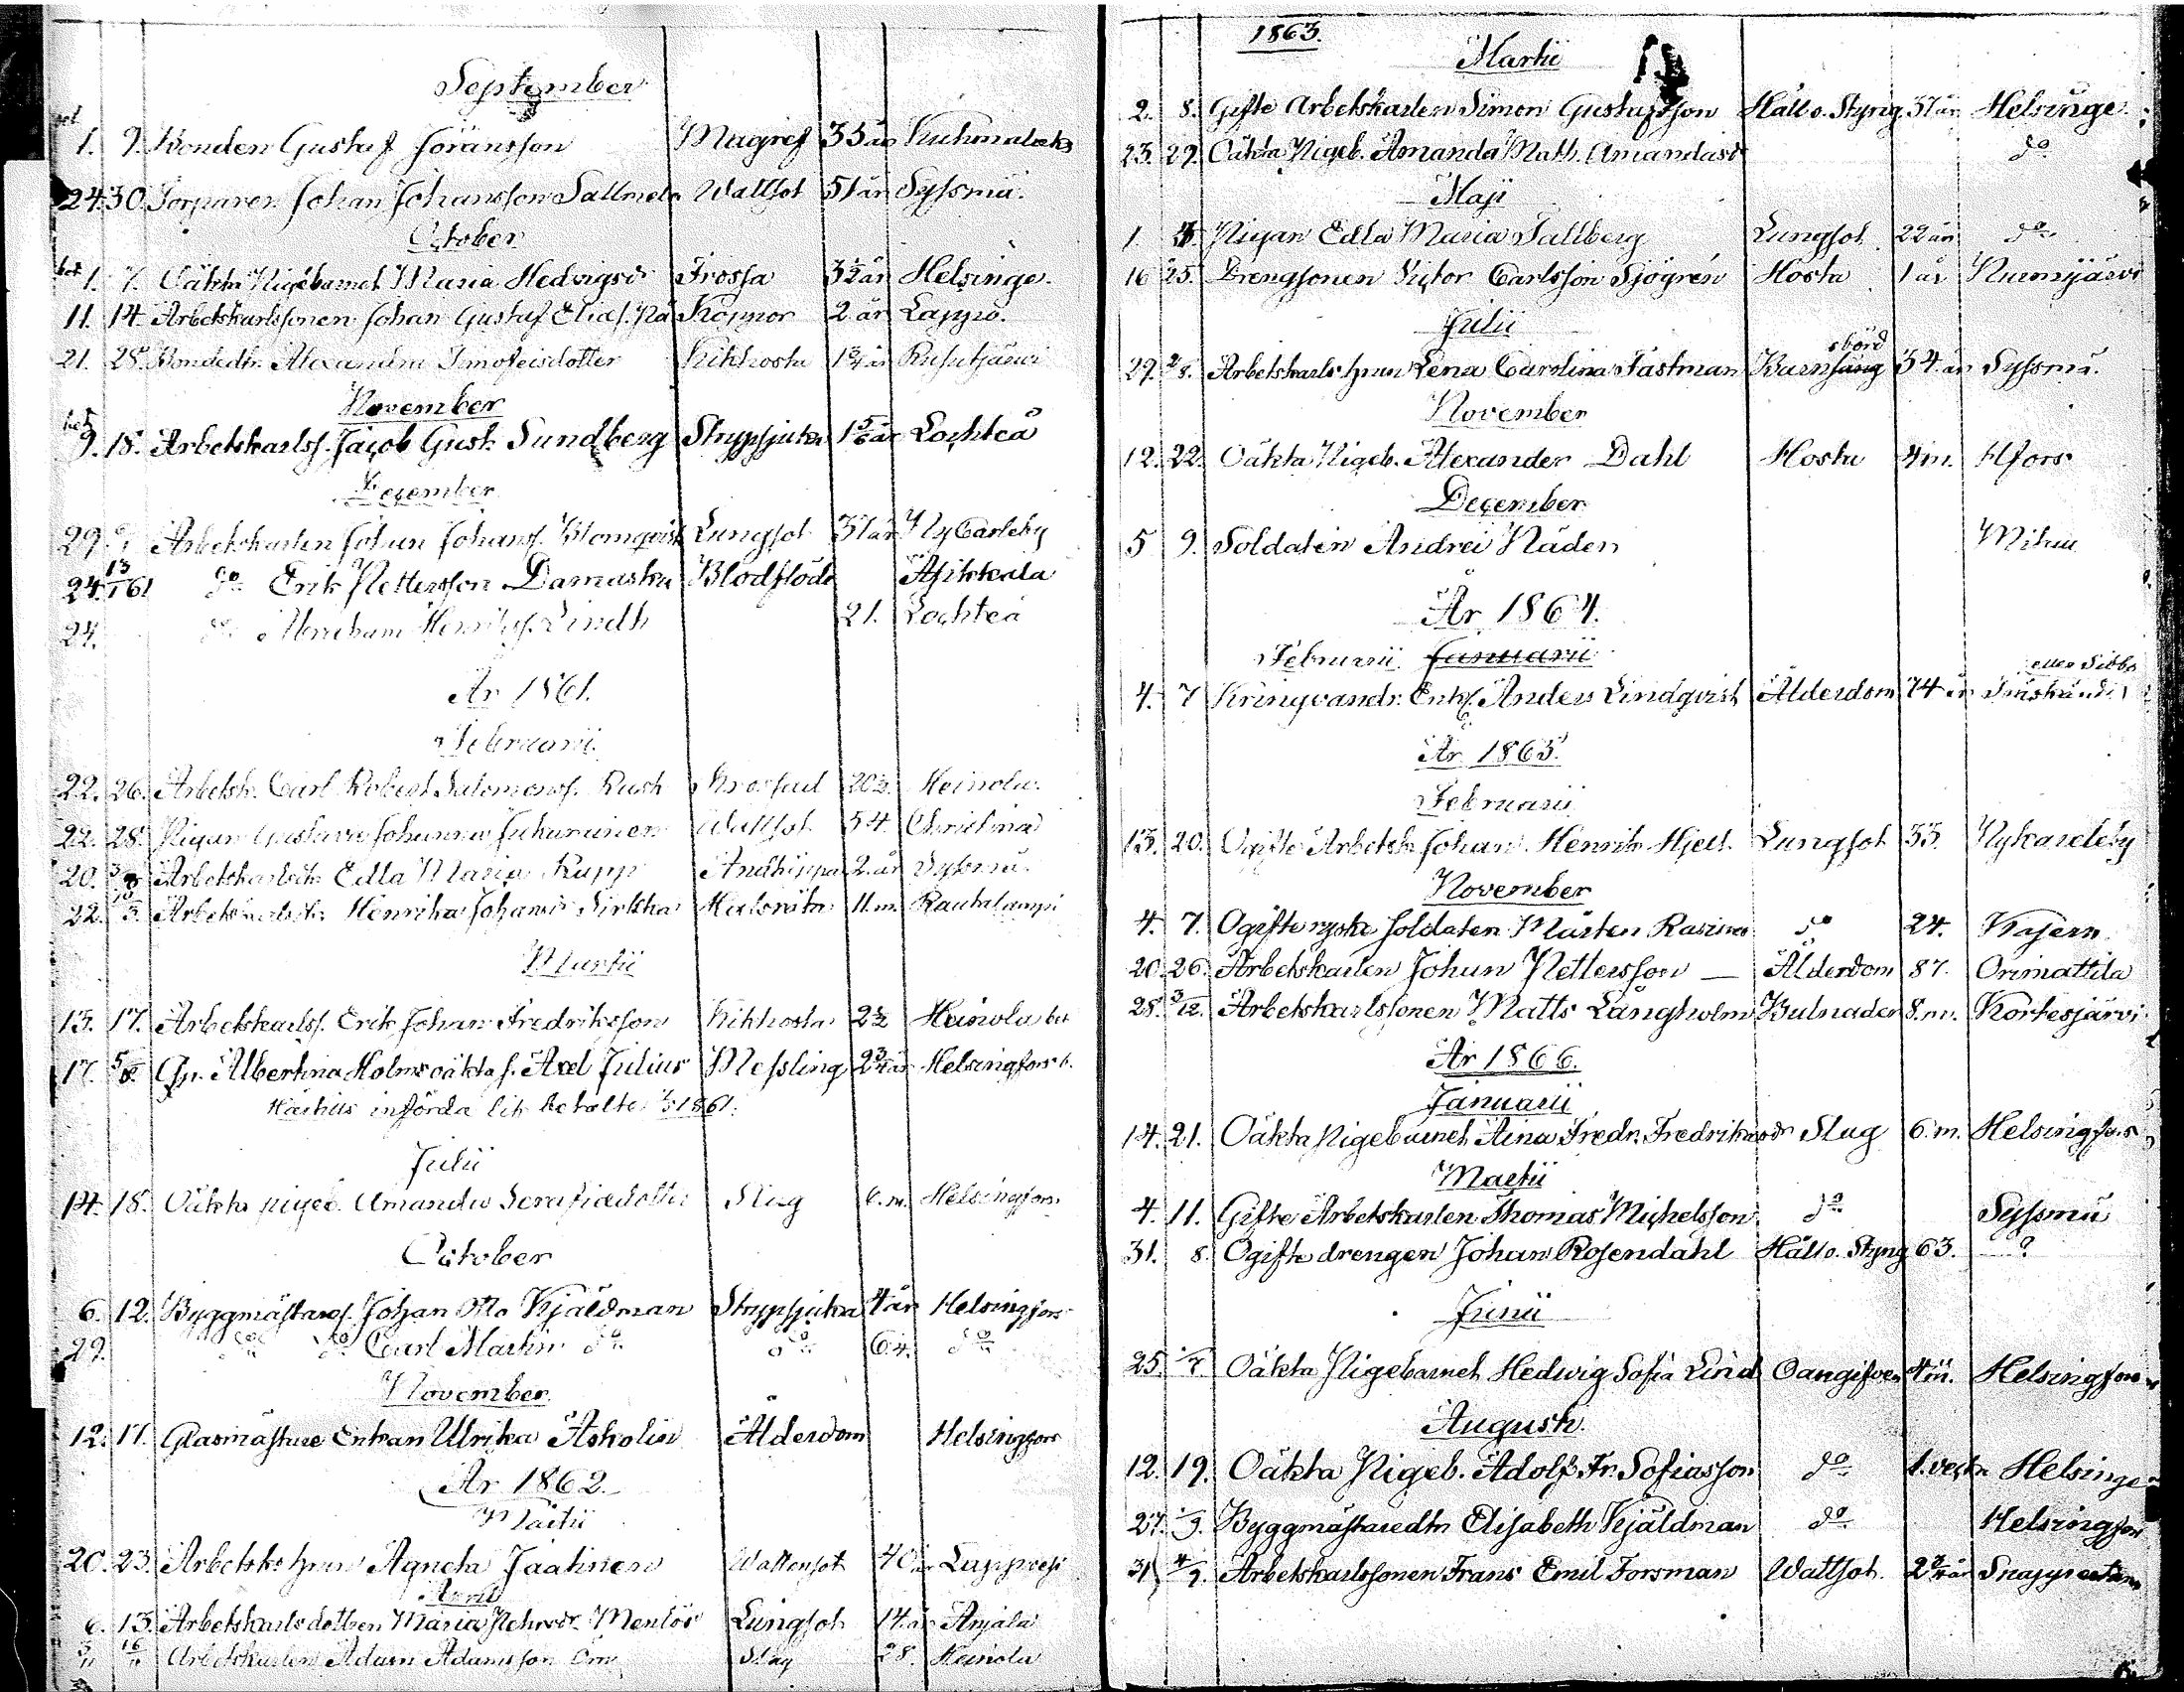 September
1. 9. Bonden Gustaf Göransson Magref 35 år Kuhmalaks
24. 30. Torparen Johan Johansson Sallmela Wattsot 51 år Sysmä.
October
1. 7. Oäkta Pigebarnet Maria Hedvigsdr Trossa 3½ år Helsinge.
11. 14. Arbetskarlssonen Johan Gustaf Eliass. Koppor 2 år Lappo.
21. 28. Bondedtr. Alexandra Timofeisdotter Kikhosta 1¾ år
November
9. 18. Arbetskarlss. Jacob Gust. Sundberg Strypsjuka 1 5/6 år Lochteå
December
29. Arbetskarlen Johan Johanss. Blomqvist Lungsot 37 år Ny Carleby
24. 13/1 61 do Erik Pettersson Damaska Blodflöde Asikkala
24. do Abraham Henrikss. Lindh 21. Lochteå
År 1861.
Februarii.
22. 26. Arbetsk. Carl Robert Salomonss. Rask 20½. Heinola.
22. 28. Pigan Gustava Johanna Wattsot 54. Christina
20. 3/3 Arbetskarlsdtr Edla Maria Rapp Andtäppa 2. år Sysmä.
22. 10/3. Arbetskarlsdtr Henrika Johansdr Sirkka Halsröta 11. m. Rautalampi
Martii
13. 17. Arbetskarlss. Erik Johan Fredriksson Kikhosta 2½ Heinola
17. 5/8. Qp. Albertina Holms oäkta s. Axel Julius Messling 2¾ år Helsingfors
Härtills införda 1861.
Julii
14. 18. Oäkta pigeb. Amanda Serafiadotter Slag 6. m. Helsingfors.
October
6. 12. Byggmästares. Johan Otto Kjäldman Strypsjuka 4 år Helsingfors
29. do do Carl Martin do do 6¼. do
November
12. 17. Glasmästare Enkan Ulrika Askolin Ålderdom Helsingfors
År 1862.
Martii
20. 23. Arbetsk. hru Agneta Jaatinen Wattensot 40 år Lappvesi
April
6. 13. Arbetskarlsdotten Maria Pehrsdr. Lungsot 14. år Anjala
3/11 16/11 Arbetskarlen Adam Adamsson Slag 28. Heinola
1863.
Martii
2. 8. Gifte Arbetskarlen Simon Gustafsson Håll o. Styng 37 år Helsinge.
23. 29. Oäkta Pigeb. Amanda Math. Amandasdr do
Maji
1. 3 Pigan Edla Maria Sallberg Lungsot. 22 år do
16 25. Drengsonen Victor Carlsson Sjögren Hosta 1 år Nurmijärvi
Julii
29. 2/8. Arbetskarls hru Lena Carolina Fastman Barnsäng sbörd 34. år Sysmä.
November
12. 22. Oäkta Pigeb. Alexander Dahl Hosta 4 m. Hfors
December
5 9. Soldaten Andrei Näden
År 1864.
Februarii. Januarii
4. 7 Kringvandr. Enkl. Anders Lindqvist Ålderdom 74 år eller Sibbo
År 1865.
Februarii
13. 20. Ogifte Arbetsk. Johan Henrik Hjelt Lungsot 33. Nykarleby
November
4. 7. Ogifte ryska soldaten Mårten do 24. Kasern.
20. 26. Arbetskarlen Johan Pettersson — Ålderdom 87. Orimattila
28. 3/12. Arbetskarlssonen Matts Långholm Bulnader 8. m. Kortesjärvi
År 1866.
Januarii
14. 21. Oäkta Pigebarnet Aina Fredr. Fredrikasdr Slag 6. m. Helsingfors
Martii
4. 11. Gifte Arbetskarlen Thomas Michelsson. do Sysmä
31. 8. Ogifte drengen Johan Rosendahl Håll o. Styng 63. ?
Junii
25. 1/7 Oäkta Pigebarnet Hedwig Sofia Lind Oangifven 4 m. Helsingfors
Augusti.
12. 19. Oäkta Pigeb. Adolf Fr. Sofiasson do 1. veck Helsinge
27. 1/9. Byggmästaredtr. Elisabeth Kjäldman do Helsingfors
31 4/9. Arbetskarlssonen Frans Emil Forsman Wattsot. 2¾ år